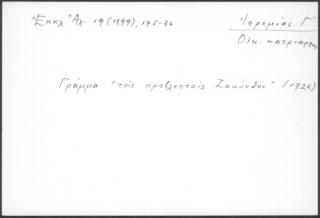 Ἐκκλ Ἀλ. 19 (1899), 175-76
Ἱερεμίας Γ'
Οἰκ. πατριάρχης
Γράμμα "τοῖς προβλεπταῖς Ζακύνθου" (1722)